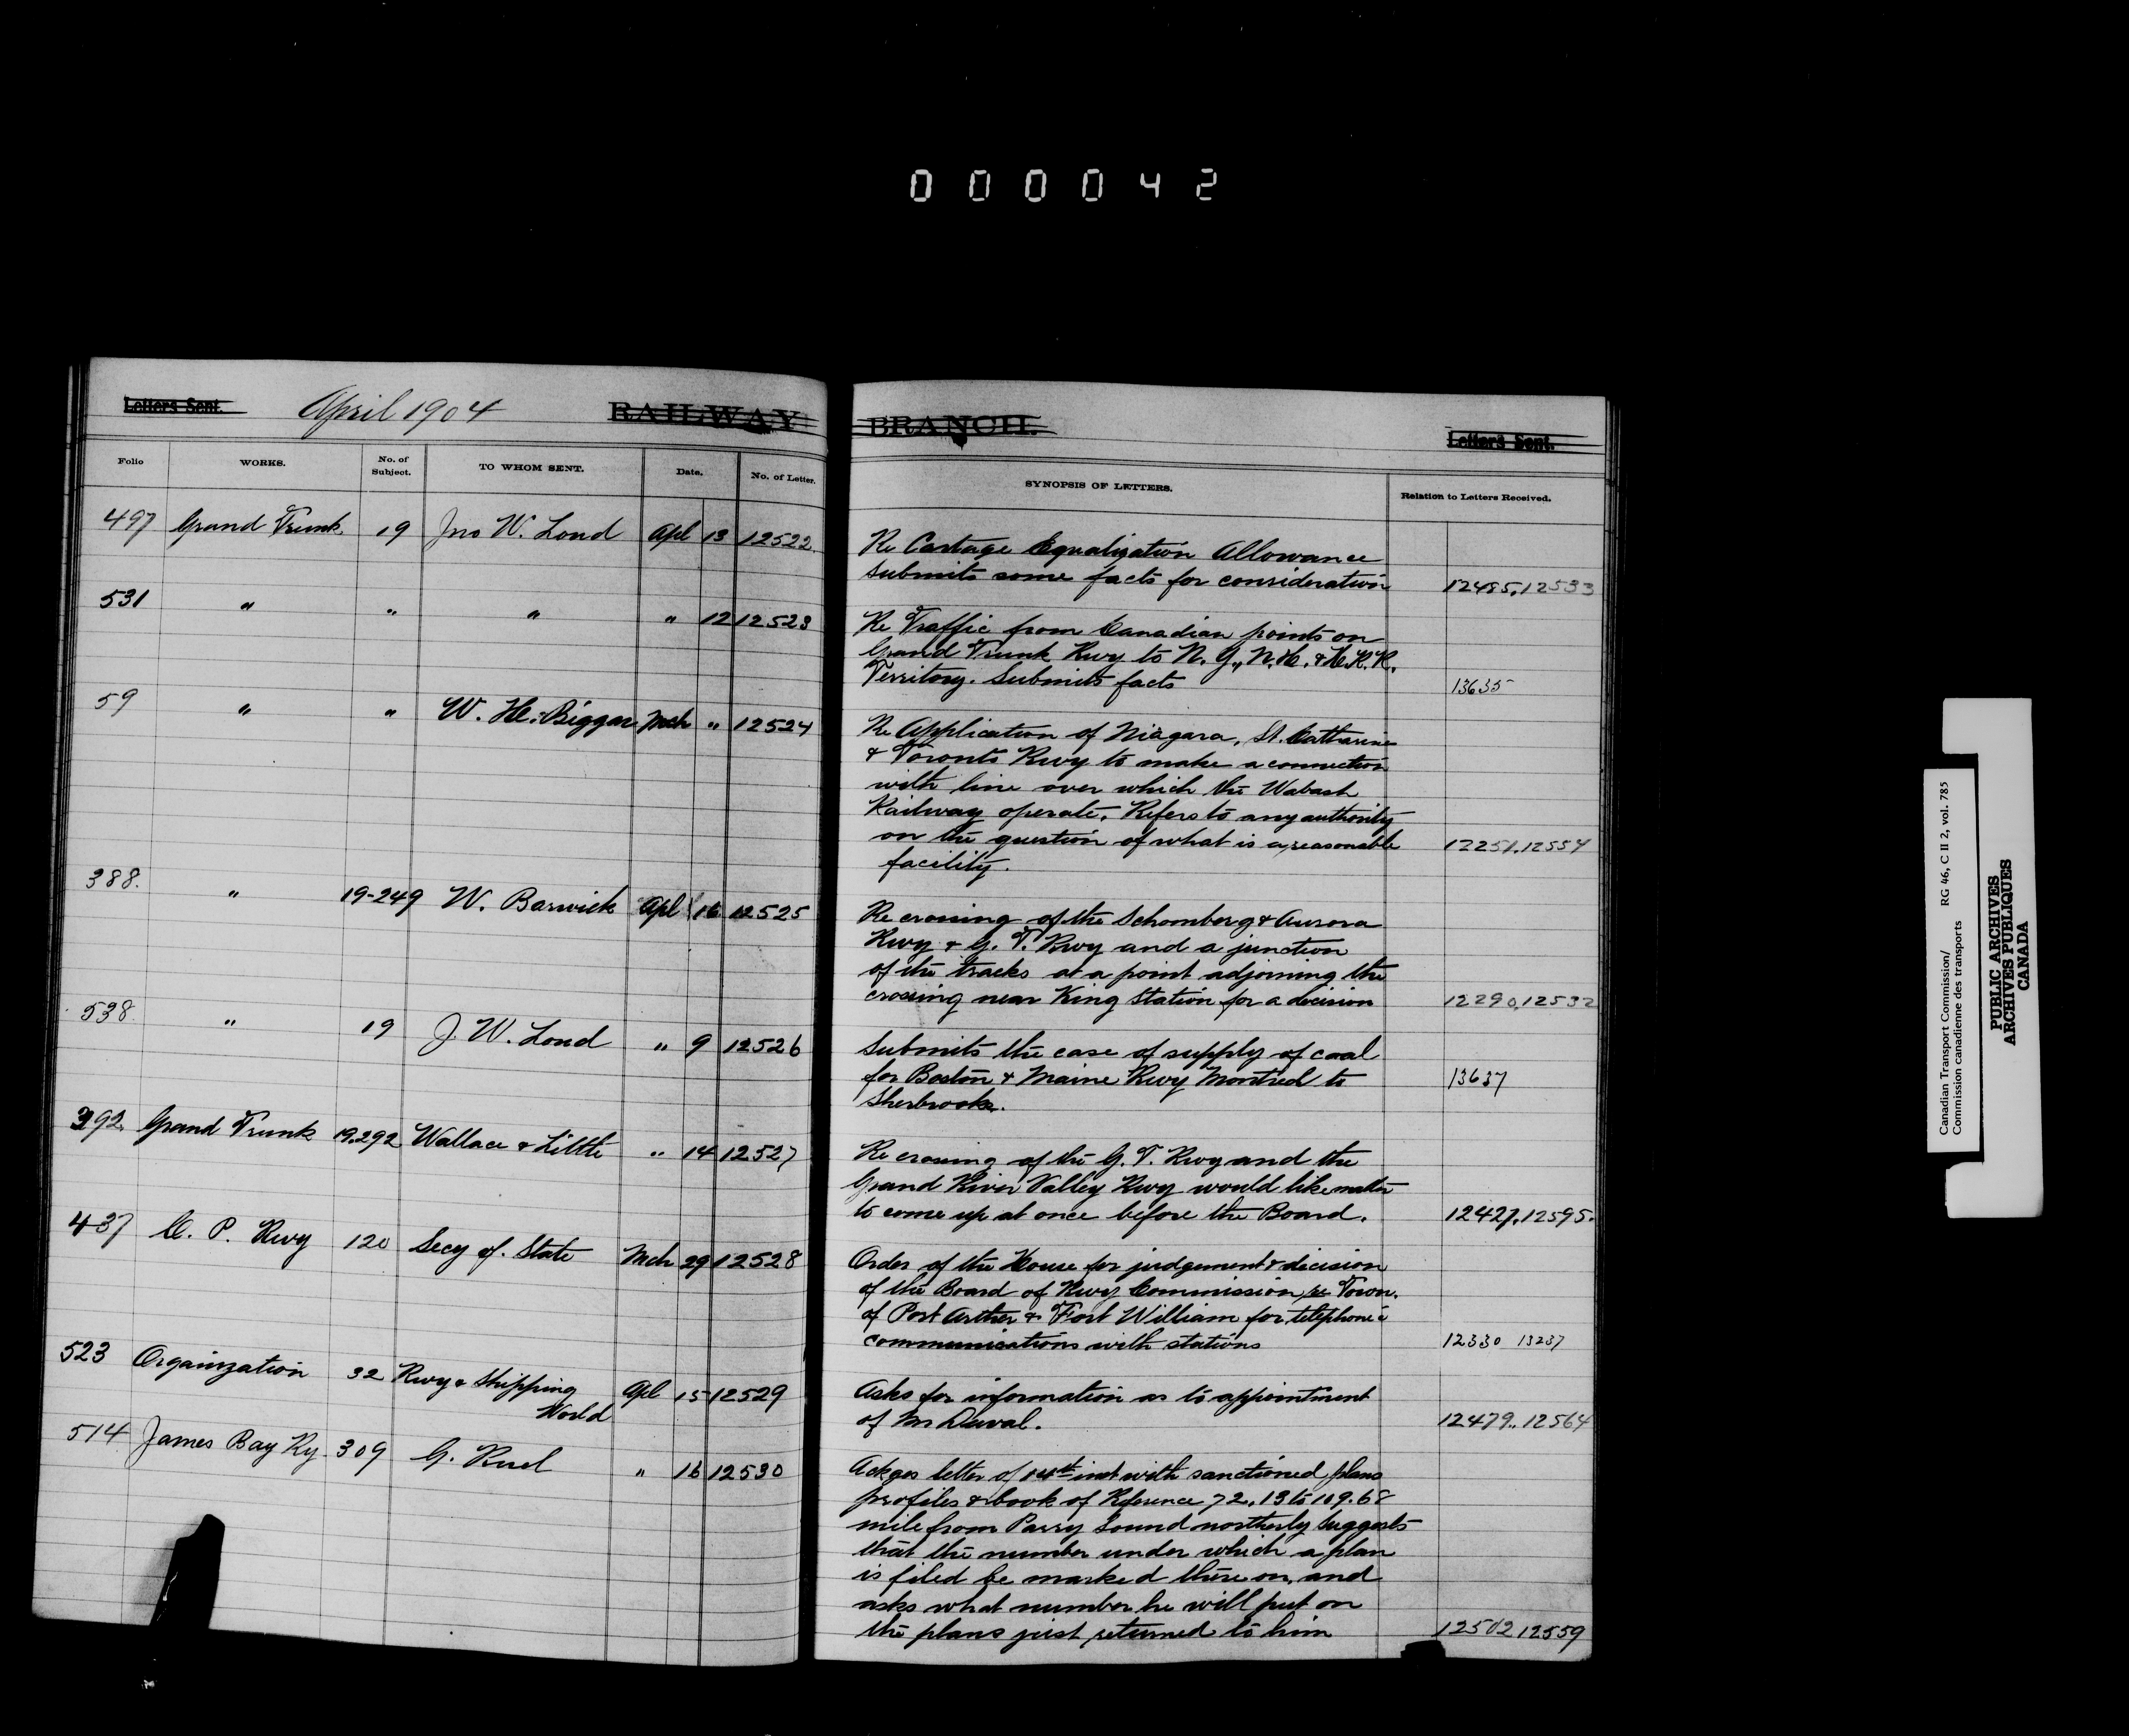 000042
Letters Sent. April 1904 RAILWAY BRANCH. Letters Sent.
Folio WORKS. No. of Subject. TO WHOM SENT. Date. No. of Letter. SYNOPSIS OF LETTERS. Relation to Letters Received.
497 Grand Trunk 19 Jno W. Loud Apl 13 12522
Re Cartage Equalization Allowance
submits some facts for consideration 12485,12533
531 " " " " 12 12523
Re Traffic from Canadian points on
Grand Trunk Rwy to N. Y., N. H. & H. R. R.
Territory. Submits facts 13635
59 " " W. H. Biggar Mch " 12524
Re Application of Niagara, St. Catharine
& Toronto Rwy to make a connection
with line over which the Wabash
Railway operate. Refers to any authority
on the question of what is a reasonable 12251,12554
facility.
388. " 19-249 W. Barwick Apl 16 12525
Re crossing of the Schomberg & Aurora
Rwy & G. T. Rwy and a junction
of the tracks at a point adjoining the
crossing near King Station for a decision 12290,12532
538. " 19 J. W. Loud " 9 12526
Submits the case of supply of coal
for Boston & Maine Rwy Montreal to 13637
Sherbrooke.
392. Grand Trunk 19.292 Wallace & Little " 14 12527
Re crossing of the G. T. Rwy and the
Grand River Valley Rwy would like matter
to come up at once before the Board. 12427,12595.
437 C. P. Rwy 120 Secy of State Mch 29 12528
Order of the House for judgement & decision
of the Board of Rwy Commission re Town.
of Port Arther & Fort William for telephone
communications with stations 12330 13237
523 Organization 32 Rwy & Shipping Apl 15 12529
World
Asks for information as to appointment
of Mr Duval. 12479., 12564
514 James Bay Ry. 309 G. Ruel " 16 12530
Ackges letter of 14th inst with sanctioned plans
profiles & book of Reference 72.13 to 109.68
mile from Parry Sound northerly suggests
that the number under which a plan
is filed be marked there on, and
asks what number he will put on
the plans just returned to him 12502 12559
Canadian Transport Commission/ RG 46, C II 2, vol. 785
Commission canadienne des transports
PUBLIC ARCHIVES
ARCHIVES PUBLIQUES
CANADA